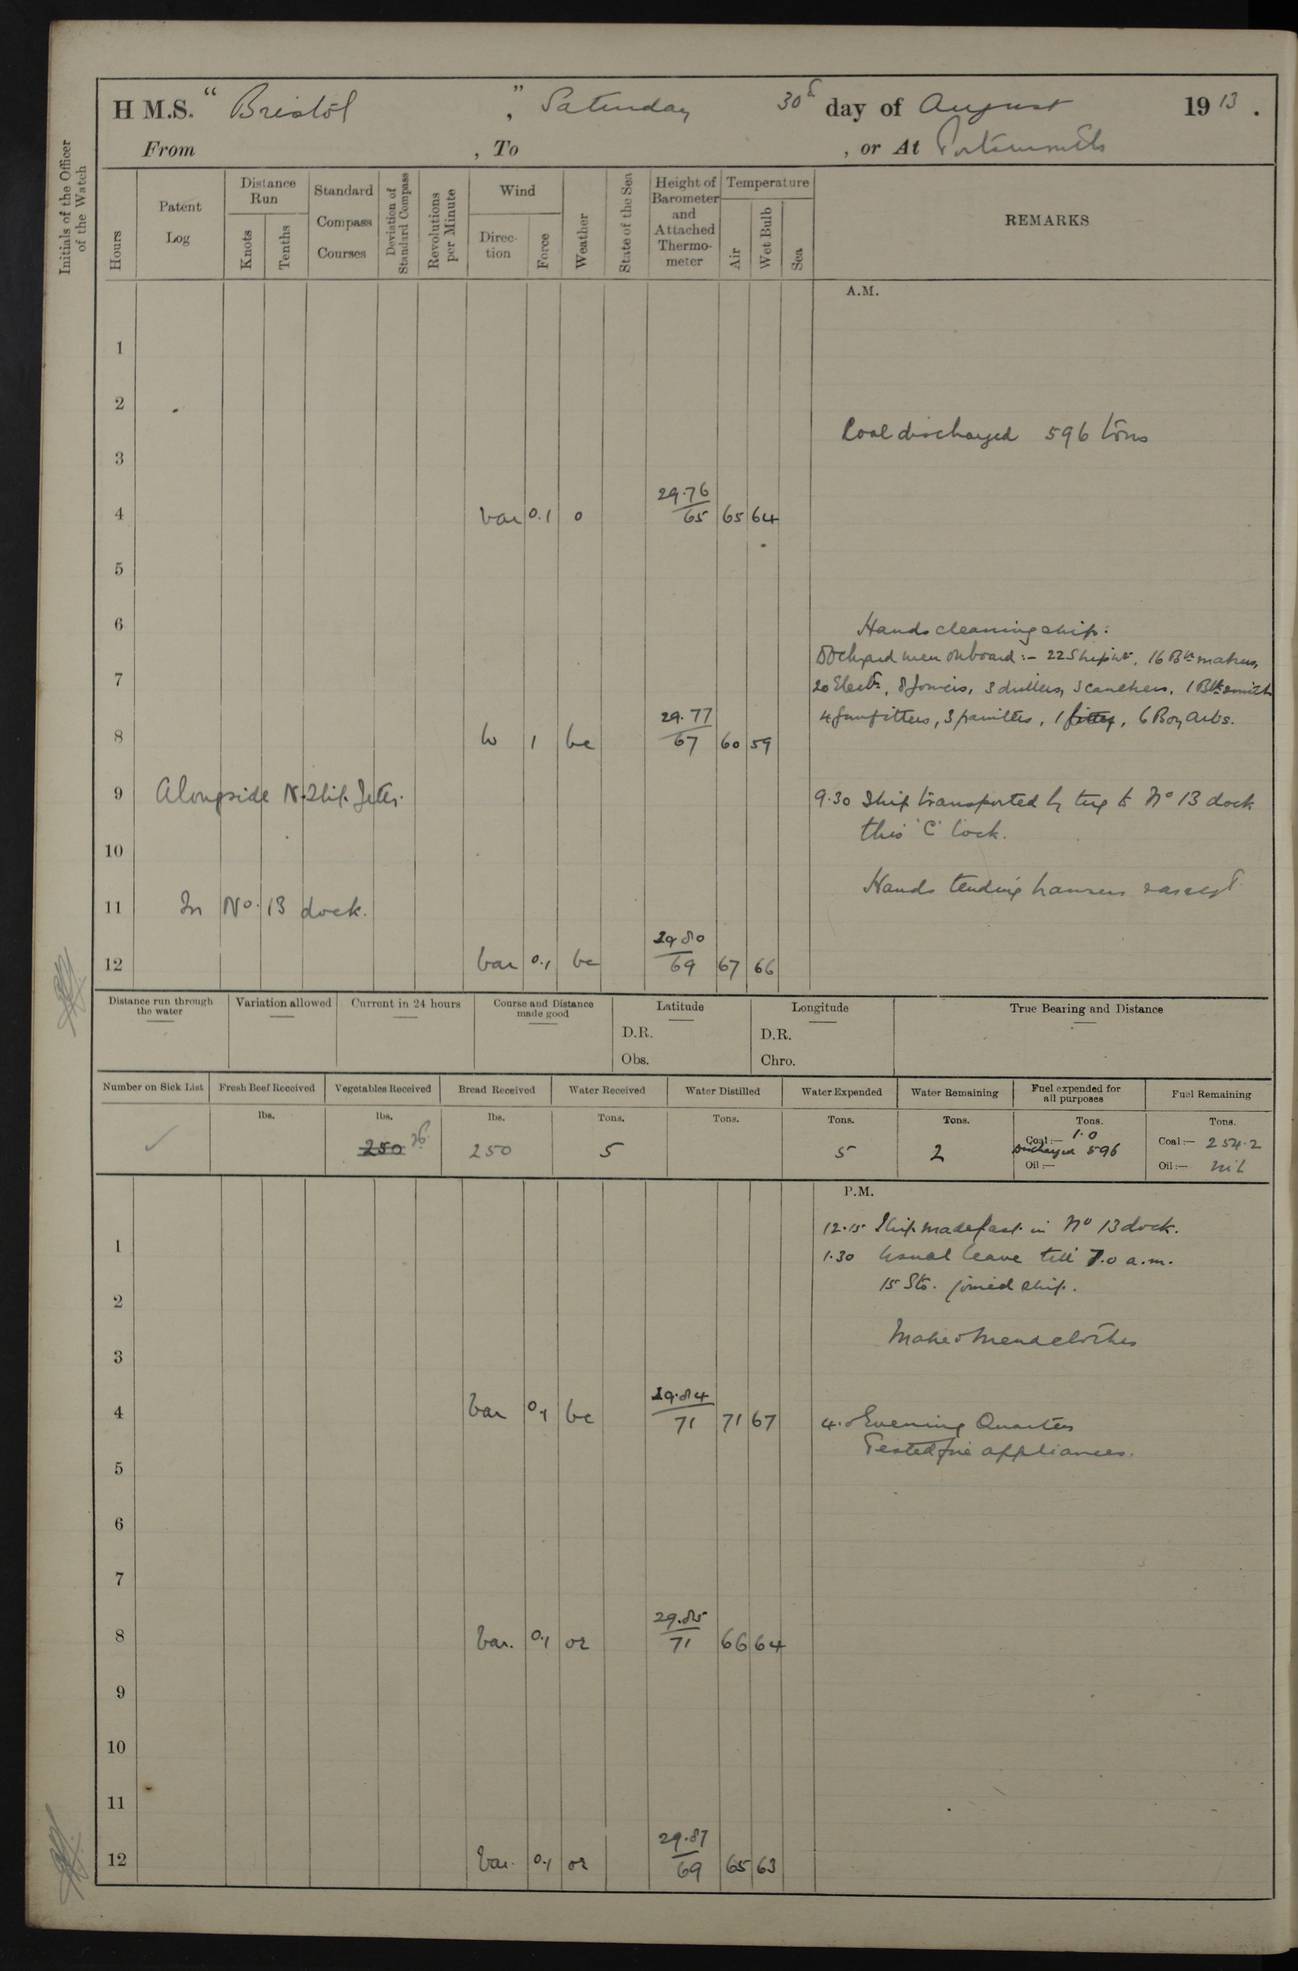 H.M.S. "Bristol", Saturday 30th day of August 1913.
From , To , or At Portsmouth
Initials of the Officer of the Watch
Hours
Patent Log
Distance Run
Knots
Tenths
Standard Compass Courses
Deviation of Standard Compass
Revolutions per Minute
Wind
Direction
Force
Weather
State of the Sea
Height of Barometer and Attached Thermometer
Temperature
Air
Wet Bulb
Sea
REMARKS
A.M.
1
2
Coal discharged 596 tons
3
4 var 0.1 o 29.76/65 65 64
5
6 Hands cleaning ship.
Dockyard men onboard :- 22 Shipwts, 16 Br makers,
7
20 Electns, 8 Joiners, 3 drillers, 3 caulkers, 1 Blksmith
4 Gunfitters, 3 painters, 1 fitter, 6 Boy Arts.
8 W 1 bc 29.77/67 60 59
9 Alongside N. Slip Jetty. 9.30 Ship transported by tug to No 13 dock
thro 'C' lock.
10
Hands tending hawsers
11 In No. 13 dock.
12 var 0.1 bc 29.80/69 67 66
Distance run through the water
Variation allowed
Current in 24 hours
Course and Distance made good
Latitude
D.R.
Obs.
Longitude
D.R.
Chro.
True Bearing and Distance
Number on Sick List
Fresh Beef Received
Vegetables Received
Bread Received
Water Received
Water Distilled
Water Expended
Water Remaining
Fuel expended for all purposes
Fuel Remaining
lbs. lbs. lbs. Tons. Tons. Tons. Tons. Tons. Tons.
250 250 5 5 2
Coal:— 1.0
Discharged 596
Oil:—
Coal:— 254.2
Oil:— nil
P.M.
12.15 Ship made fast in No 13 dock.
1
1.30 Usual leave till 7.0 a.m.
15 Sto. joined ship.
2
Make & Mend clothes
3
4 var 0.1 bc 29.84/71 71 67 4.0 Evening Quarters
Tested fire appliances.
5
6
7
8 var. 0.1 or 29.85/71 66 64
9
10
11
12 var. 0.1 or 29.87/69 65 63